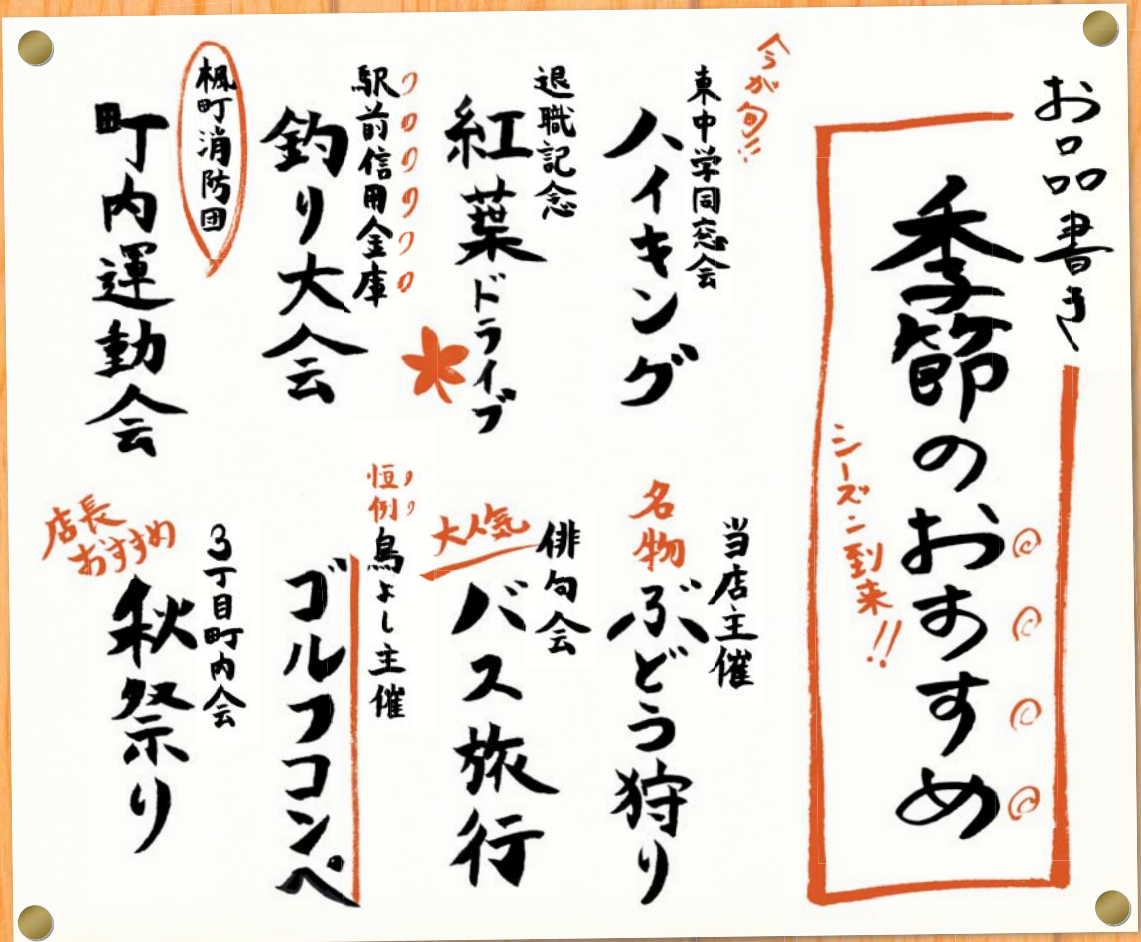 お品書き
季節のおすすめ
シーズン到来!!
今が旬!!
東中学同窓会
ハイキング
退職記念
紅葉ドライブ
駅前信用金庫
釣り大会
楓町消防団
町内運動会
当店主催
名物
ぶどう狩り
俳句会
大人気
バス旅行
恒例
鳥よし主催
ゴルフコンペ
3丁目町内会
店長
おすすめ
秋祭り